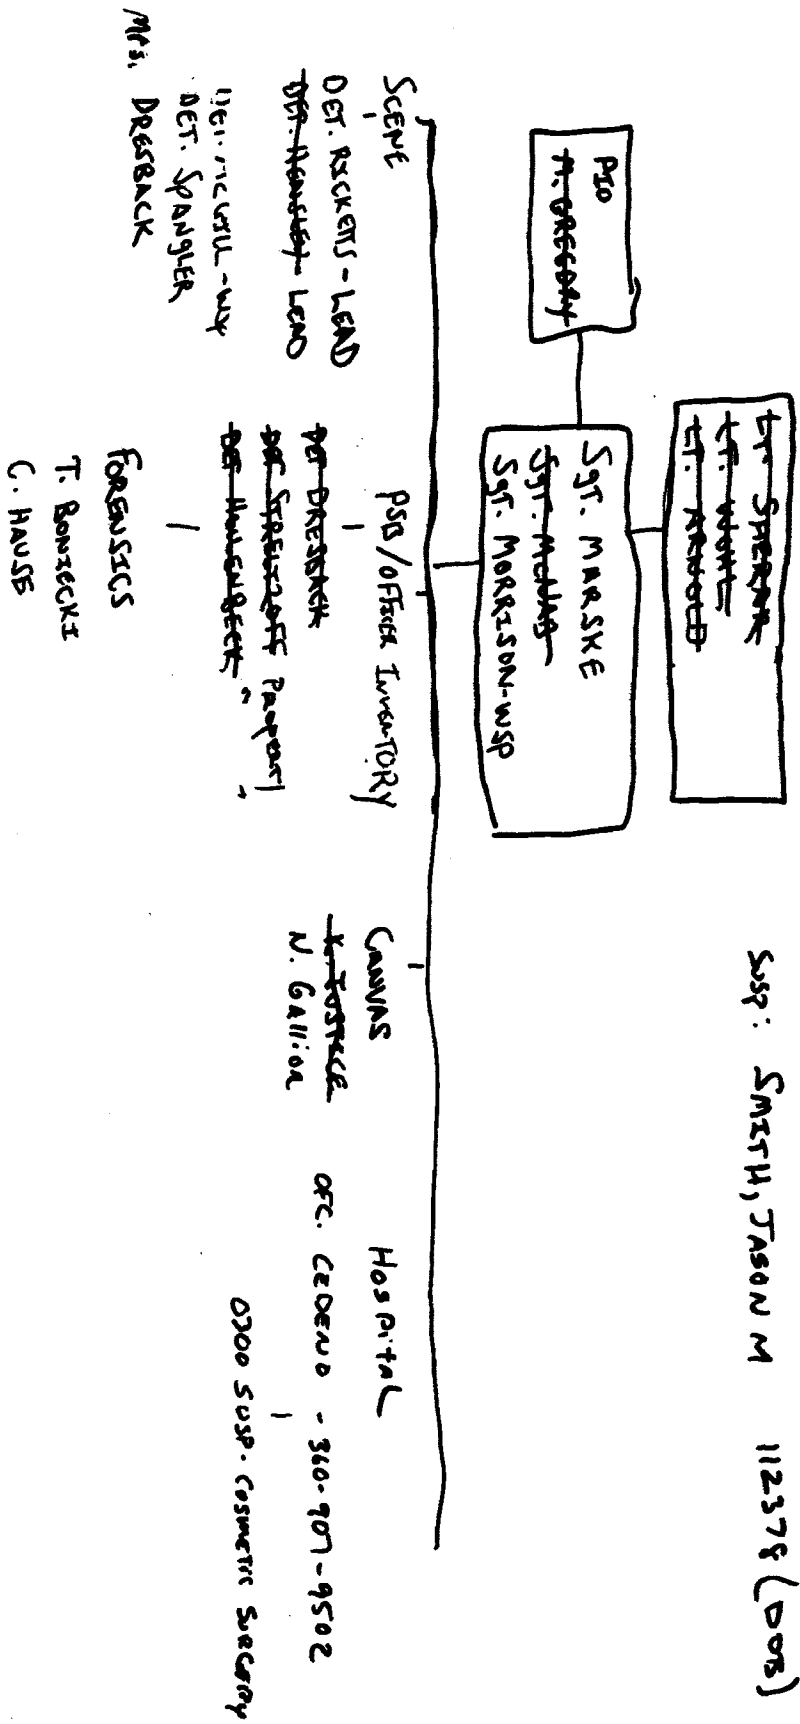 Susp: SMITH, JASON M 112378 (DOB)
LT. SHERAR
LT. WOHL
LT. ARNOLD
PIO
A. GREGORY
SGT. MARSKE
SGT. MCNAB
SGT. MORRISON-WSP
SCENE
DET. RICKETTS - LEAD
DET. HEMSLEY - LEAD
DET. SPANGLER
MPS. DRESBACK
PSB/OFFICER INVENTORY
DET DRESBACK
DET STRELTZOFF Property
DET HOLENBECK " "
FORENSICS
T. BONIECKI
C. HAUSE
CANVAS
K. JUSTICE
N. Gallion
HOSPITAL
OFC. CEDENO - 360-907-9502
0700 SUSP. COSMETIC SURGERY